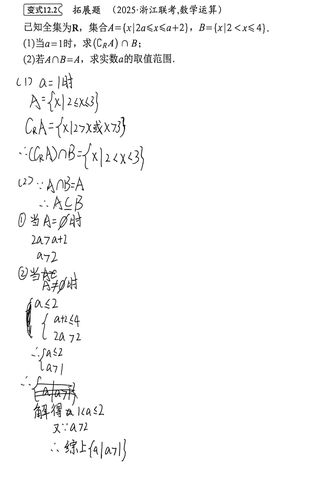 变式12.2 拓展题 (2025·浙江联考,数学运算)
已知全集为R，集合A={x|2a≤x≤a+2}，B={x|2<x≤4}.
(1)当a=1时，求(∁RA)∩B；
(2)若A∩B=A，求实数a的取值范围.
(1) a=1时
A={x|2≤x≤3}
CRA={x|2>x或x>3}
∴(CRA)∩B={x|2<x<3}
(2) ∵A∩B=A
∴A⊆B
①当A=∅时
2a>a+2
a>2
②当A≠∅时
a≤2
{a+2≤4
2a>2
∴{a≤2
a>1
∴{a|a>1}
解得 1<a≤2
又∵a>2
∴综上{a|a>1}